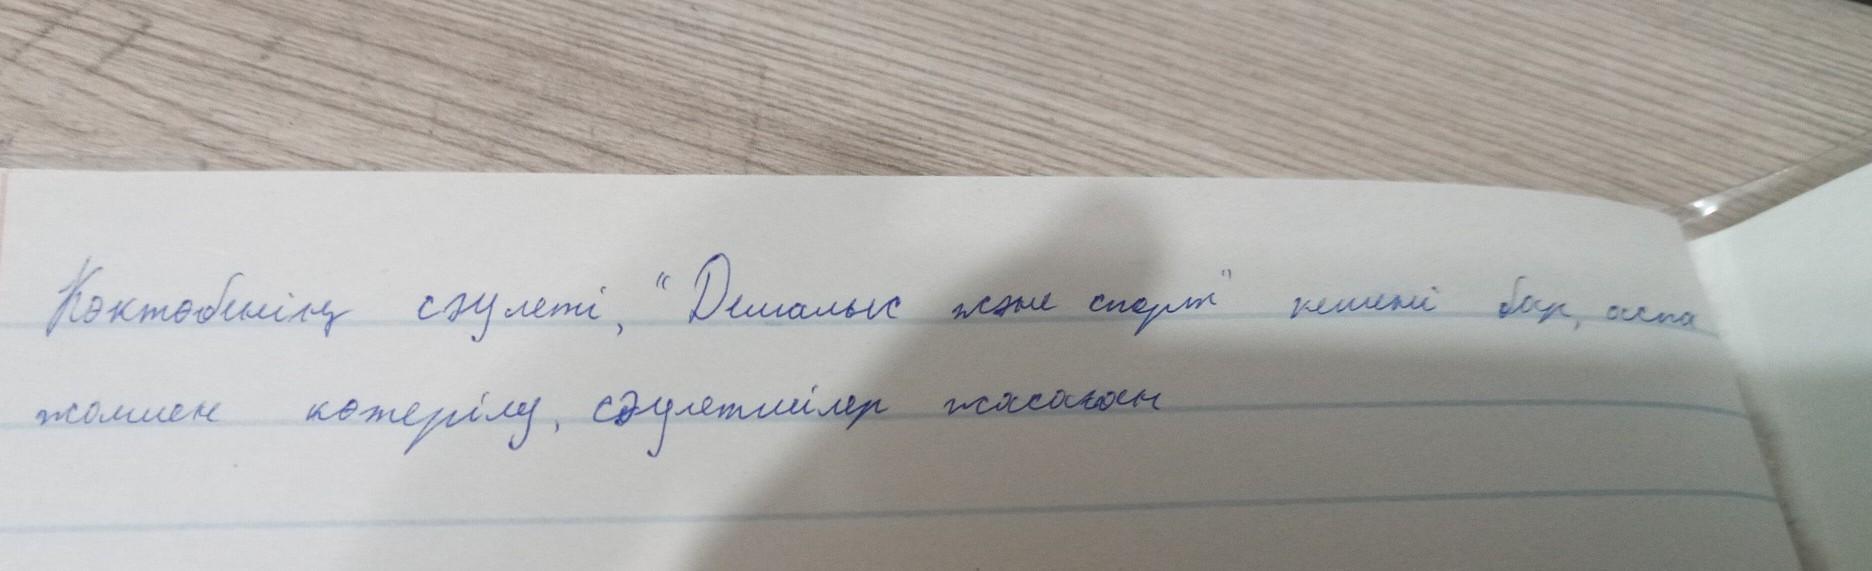 Көктөбенің сәулеті, "Демалыс және спорт" кешені бар, аспа
жолмен көтерілу, сәулетшілер жасаған